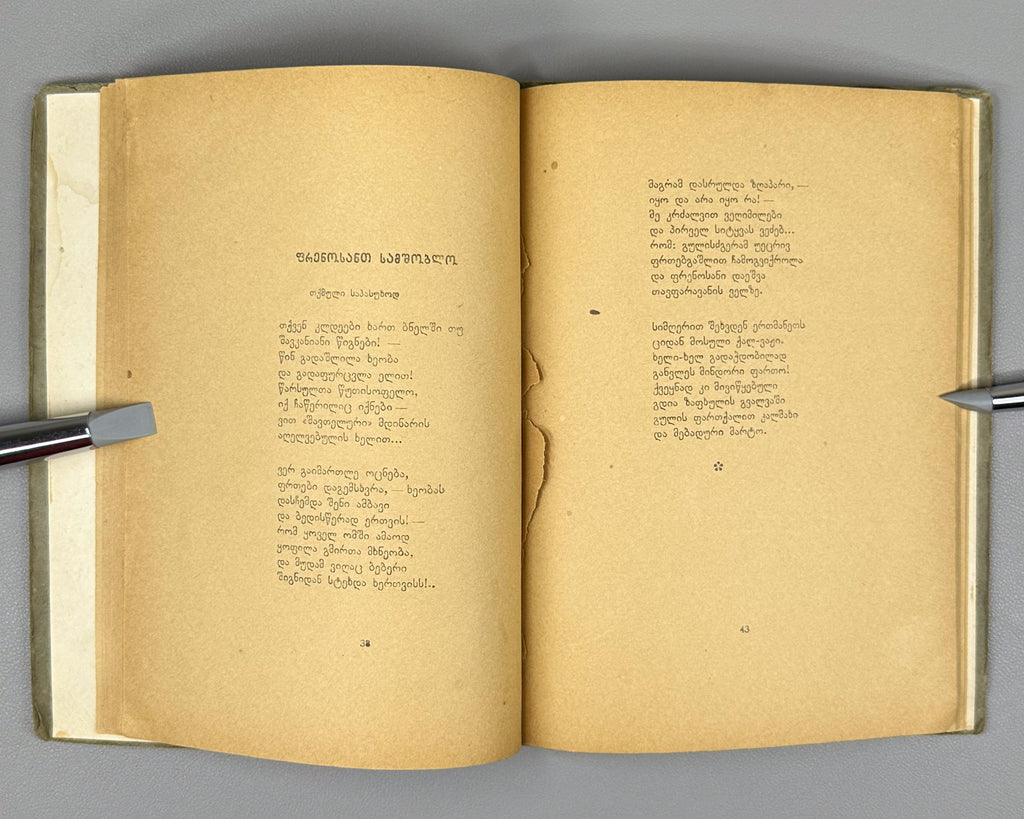 ფრენოსანთ სამშობლო
თქმული საპასუხოდ
თქვენ კლდეები ხართ ბნელში თუ
შავკანიანი წიგნები! —
წინ გადაშლილა ხეობა
და გადაფურცვლა ელით!
წარსულთა წუთისოფელო,
იქ ჩაწერილიც იქნები —
ვით «შავთელური» მდინარის
აღელვებულის ხელით...
ვერ გაიმართლე ოცნება,
ფრთები დაგემსხვრა, — ხეობას
დასჩემდა შენი ამბავი
და ბედისწერად ერთვის! —
რომ ყოველ ომში ამაოდ
ყოფილა გმირთა მხნეობა,
და მუდამ ვიღაც ბებერი
შიგნიდან სტეხდა ხერთვისს!..
38
მაგრამ დასრულდა ზღაპარი, —
იყო და არა იყო რა! —
მე კრძალვით ვეღიმილები
და პირველ სიტყვას ვეძებ...
რომ: გულისძგერამ უეცრივ
ფრთებგაშლით ჩამოგვიქროლა
და ფრენოსანი დაეშვა
თავფარავანის ველზე.
სიმღერით შეხვდენ ერთმანეთს
ციდან მოსული ქალ-ვაჟი.
ხელი-ხელ გადაჭდობილად
განვლეს მინდორი ფართო!
ქვეყნად კი მივიწყებული
გდია ზაფხულის გვალვაში
გულის ფართქალით კალმახი
და მებადური მარტო.
43